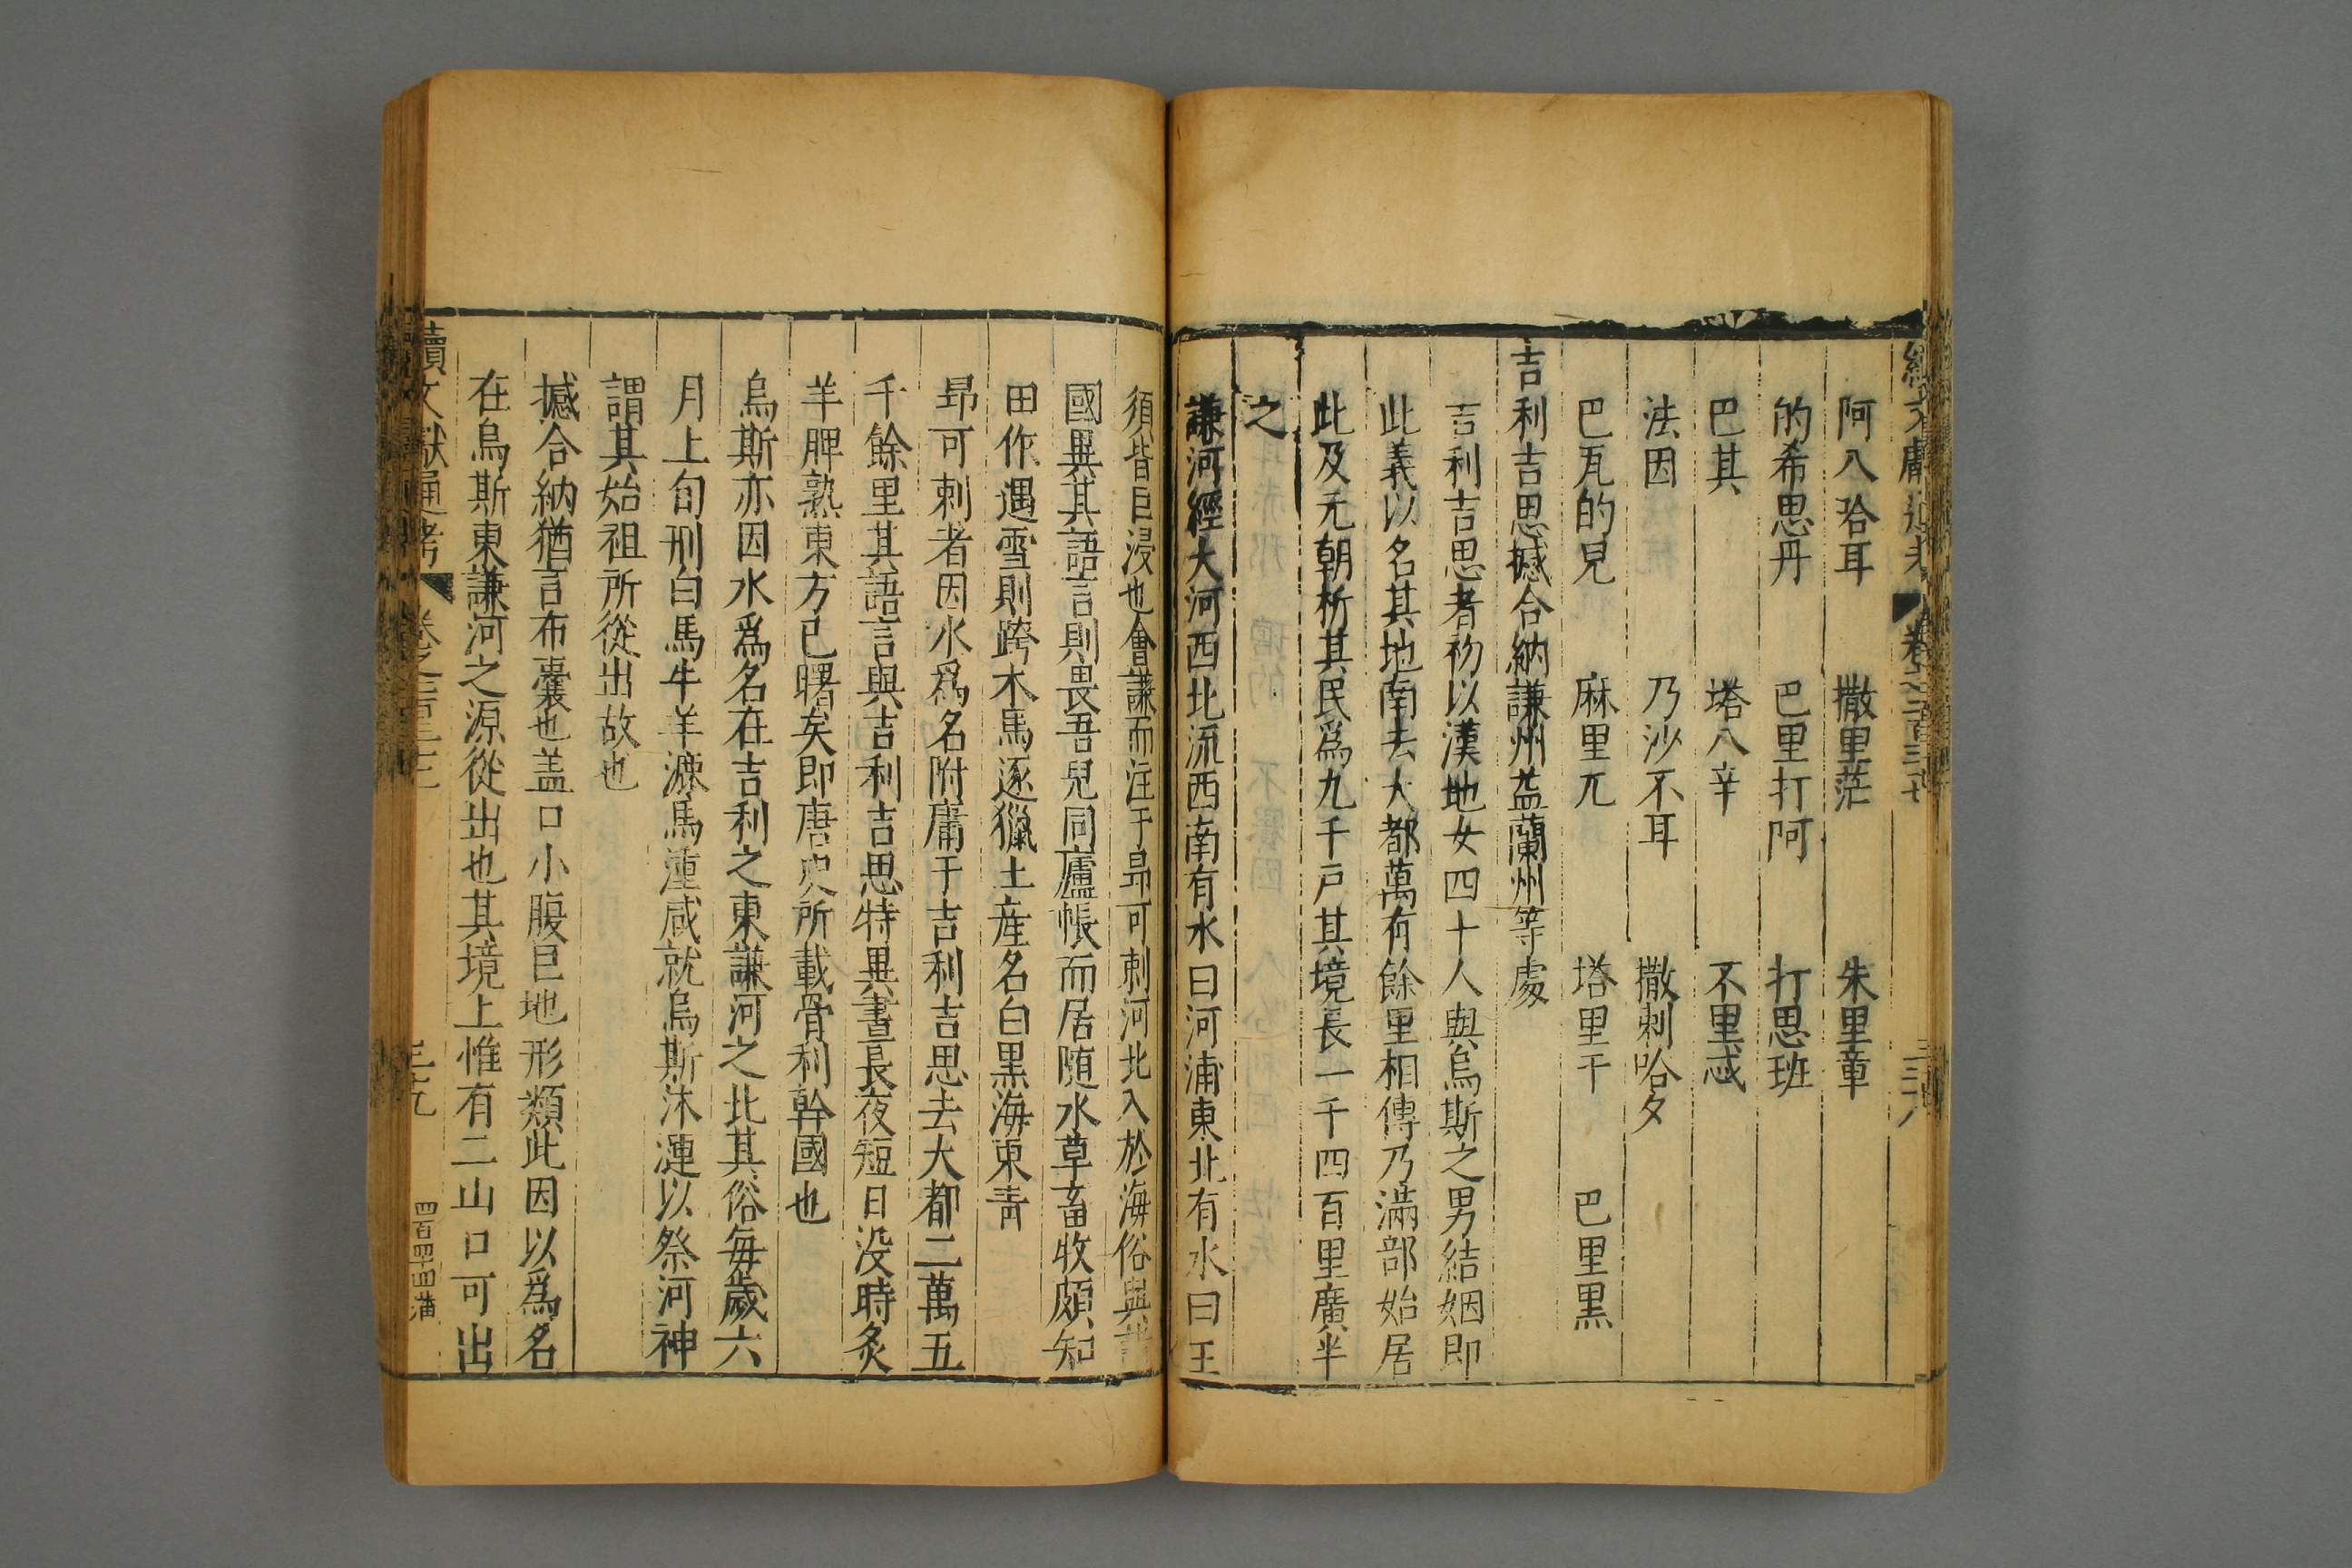 阿八哈耳　撒里茫　朱里章
的希思丹　巴里打阿　打思班
巴其　塔八辛　不里忒
法因　乃沙不耳　撒剌哈夕
巴瓦的見　麻里兀　塔里干　巴里黒
吉利吉思撼合納謙州益蘭州等處
吉利吉思者初以漢地女四十人與烏斯之男結姻即
此義以名其地南去大都萬有餘里相傳乃滿部始居
此及元朝析其民爲九千戸其境長一千四百里廣半
之
謙河經大河西北流西南有水曰河浦東北有水曰王
須皆巨浸也會謙而注于昻可剌河北入於海俗與諸
國異其語言則畏吾兒同廬帳而居隨水草畜牧頗知
田作遇雪則跨木馬逐獵土産名白黒海東青
昻可剌者因水爲名附庸于吉利吉思去大都二萬五
千餘里其語言與吉利吉思特異晝長夜短日没時炙
羊脾熟東方已曙矣即唐史所載骨利幹國也
烏斯亦因水爲名在吉利之東謙河之北其俗每歳六
月上旬刑白馬牛羊灑馬湩咸就烏斯沐漣以祭河神
謂其始祖所從出故也
撼合納猶言布囊也盖口小腹巨地形類此因以爲名
在烏斯東謙河之源從出也其境上惟有二山口可出
續文獻通考　卷之二百三十　三九　四百四四　蒲